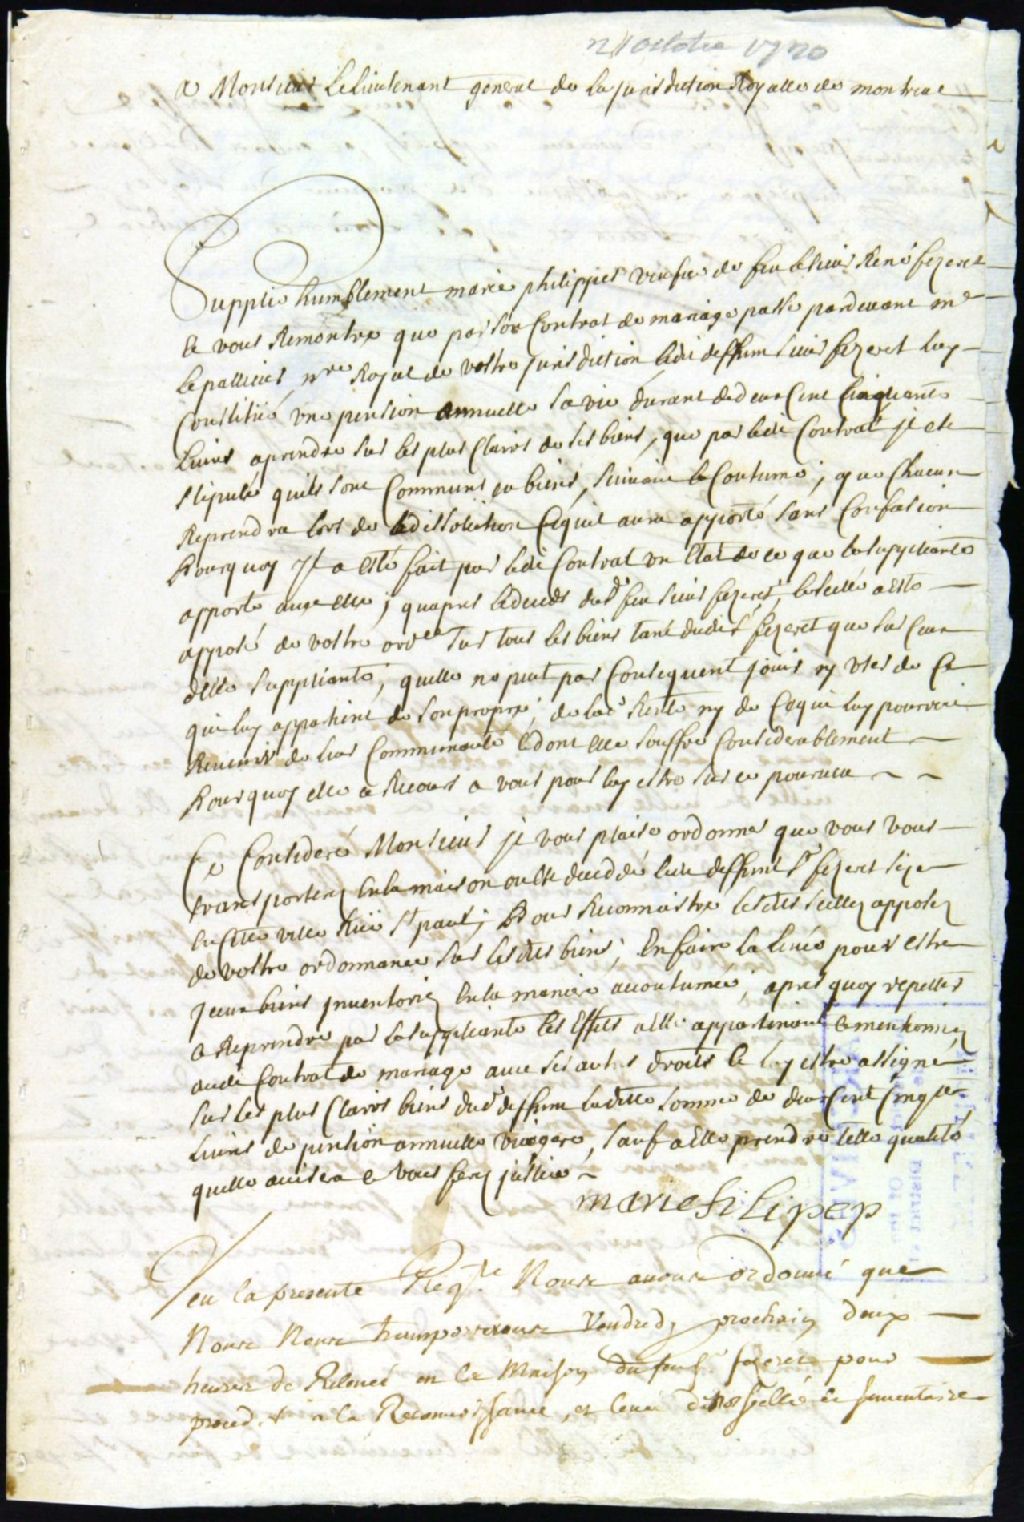 21 octobre 1720
A Monsieur Le Lieutenant general de La Jurisdiction Royalle de montreal
Supplie humblement marie philippes veufve de feu le sieur René fezeret
et vous Remontre que par son Contrat de mariage passé pardevant me
Lepallieur nre Royal de vostre Jurisdiction ledit deffunt sieur fezeret luy
Constitué une pension annuelle sa vie durant de deux Cent Cinquante
Livres aprendre sur les plus Clairs de ses biens, que par ledit Contrat jl est
stipulé quils sont Communs en biens, suivant la Coutume; que Chacun
Reprendra lors de la dissolution Cequil aura apporté sans Confusion
Pourquoy Jl a esté fait par ledit Contrat un Etat de ce que la suppliante
apporte avec elle; quapres le deceds dud feu sieur fezeret, le scellé a esté
apposé de vostre ordce sur tous les biens tant dudit sr fezeret que sur Ceux
delle suppliante, quelle ne peut par Consequent jouir ny user de Ce
qui luy appartient de son propre, de lad Rente ny de Cequi luy pourroit
Revenir de leur Communauté dont elle souffre Considerablement
Pourquoy elle a Recours a vous pour luy estre sur ce pourveu
Ce Consideré Monsieur jl vous plaise ordonner que vous vous
transporterez en la maison ou est decedé ledit deffunt sr fezeret size
en cette ville Rüe st paul, Pour Reconnoistre lesdits scellez apposez
de vostre ordonnance sur lesdits biens, En faire la Levée pour estre
Jceux biens Jnventoriez En la maniere accoutumée, apres quoy
a Reprendre par la suppliante les Effets a elle appartenant et mentionnez
audit Contrat de mariage avec ses autres droits Et luy estre assigné
sur les plus Clairs biens dud deffunt laditte somme de deux Cent Cinqte
Livres de pension annuelle viagere, sauf a Elle prendre telle qualité
quelle avisera et vous ferez justice
marie filipep
Veu la presente Reqte Nous avons ordonné que
Nous Nous transporterons Vendredy prochain deux
heures de Relevée en la Maison du feu sr fezeret pour
proced. a la Reconnoissance, et levée de nos scellé et Jnventaire